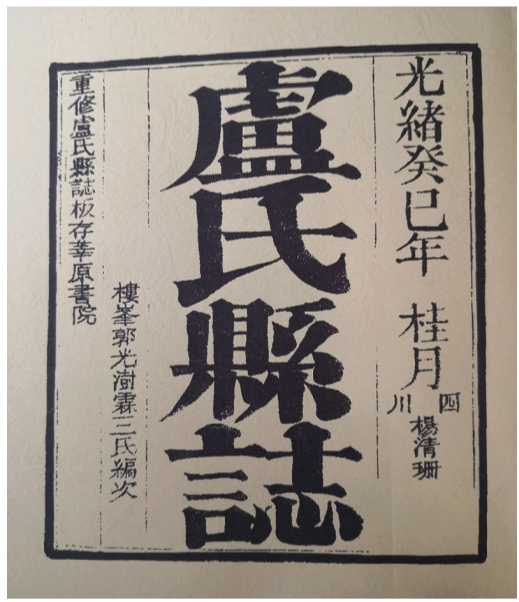 光緒癸巳年 桂月
四川
楊清珊
盧氏縣誌
樓峯郭光澍霖三氏編次
重修盧氏縣誌板存莘原書院